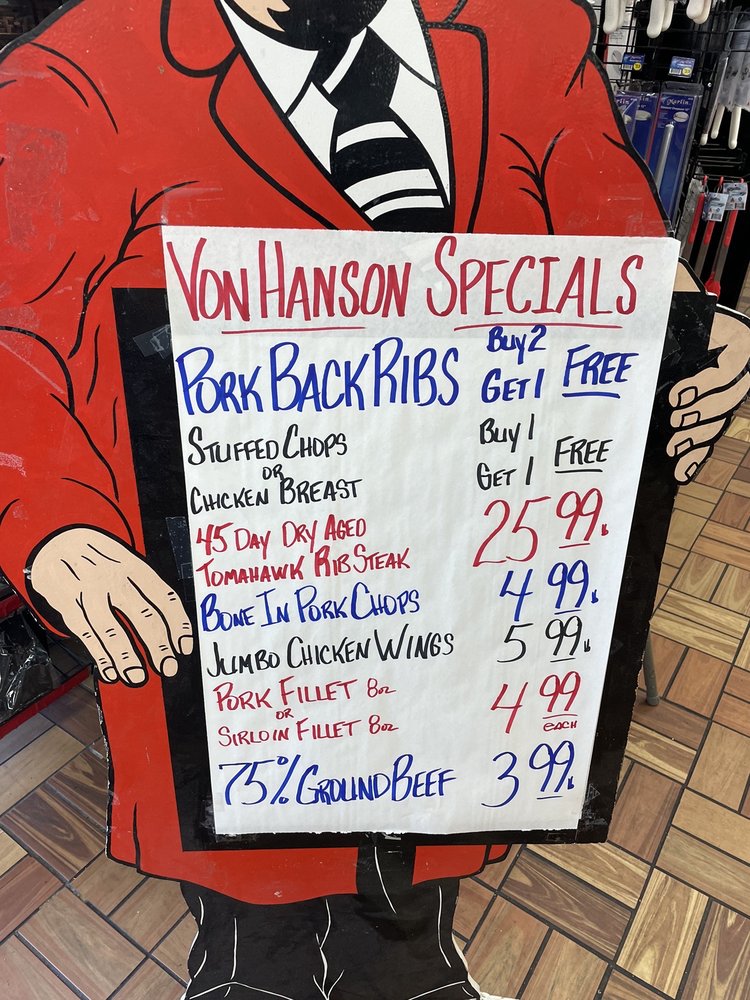 VON HANSON SPECIALS
PORK BACK RIBS Buy 2 GET 1 FREE
STUFFED CHOPS OR CHICKEN BREAST Buy 1 GET 1 FREE
45 DAY DRY AGED TOMAHAWK RIB STEAK 25 99 lb
BONE IN PORK CHOPS 4 99 lb
JUMBO CHICKEN WINGS 5 99 lb
PORK FILLET 8oz OR SIRLOIN FILLET 8oz 4 99 EACH
75% GROUND BEEF 3 99 lb